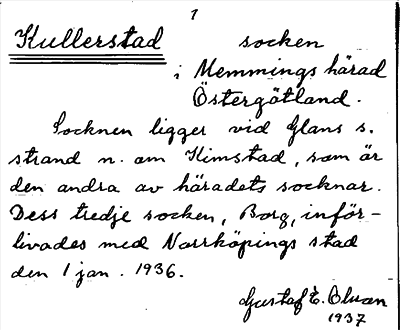 1
Kullerstad socken
i Memmings härad
Östergötland.
Socknen ligger vid Glans s.
strand n. om Kimstad, som är
den andra av häradets socknar.
Dess tredje socken, Borg, införlivades med Norrköpings stad
den 1 jan. 1936.
Gustaf E. Olson
1937